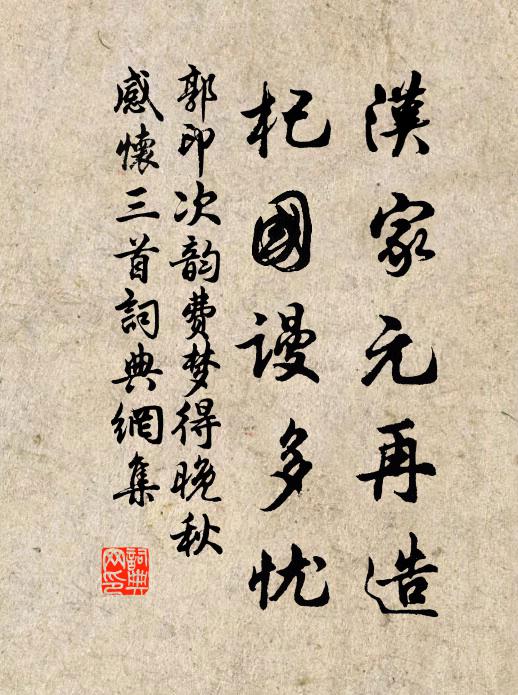 漢家元再造
杞國謾多忧
郭印次韵费梦得晚秋
感懷三首詞典網集
詞典网印